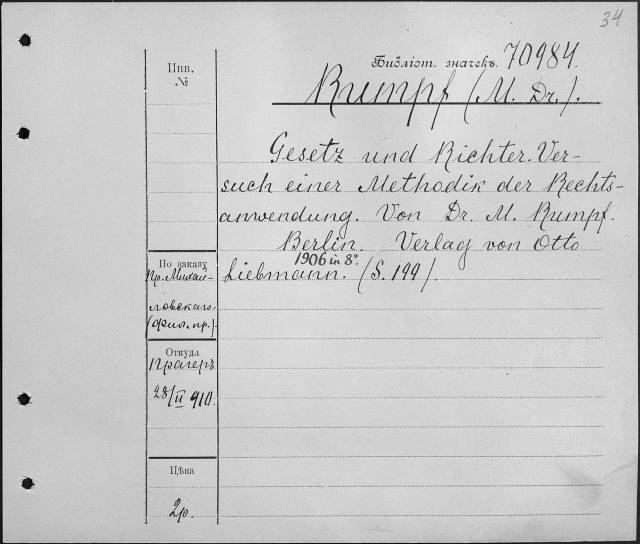 34
Библіот. значекъ 70984.
Инв.
№
Rumpf (M. Dr.).
Gesetz und Richter. Ver-
such einer Methodik der Rechts-
anwendung. Von Dr. M. Rumpf.
Berlin. Verlag von Otto
1906 in 8º.
Liebmann. (S. 199).
По заказу
Пр. Михай-
ловскаго
(фил. пр.).
Откуда
Прагеръ
28/II 910.
Цѣна
2р.